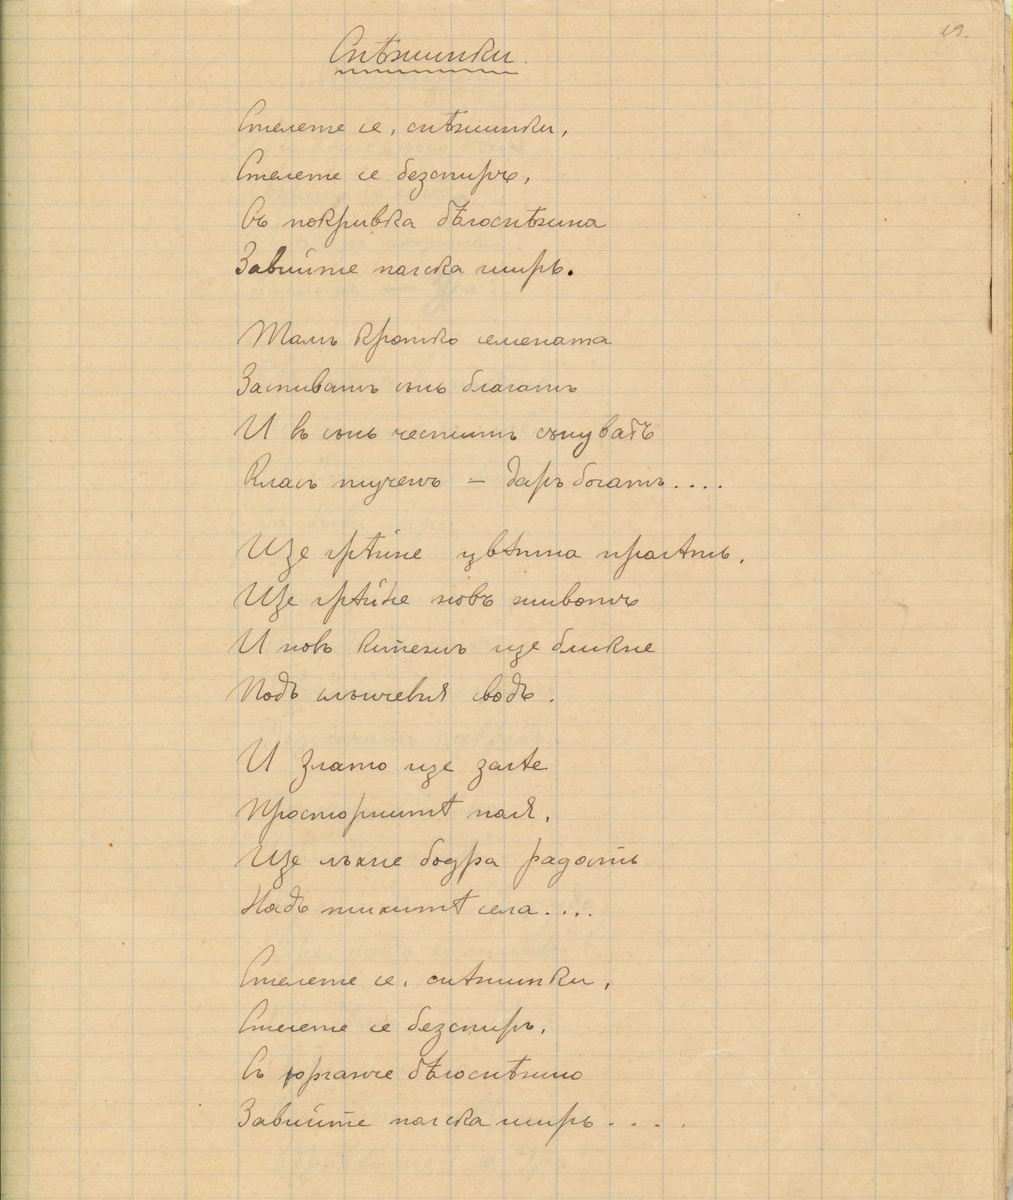 19.
Снѣжинки.
Стелете се, снѣжинки,
Стелете се безспиръ,
Съ покривка бѣлоснѣжна
Завийте полска ширь.
Тамъ кротко семената
Заспиватъ сънь благатъ
И въ сънь честитъ сънуватъ
Класъ тученъ – даръ богатъ....
Ще грѣйне цвѣтна пролѣть,
Ще грѣйне новъ животъ
И новъ кипежъ ще бликне
Подъ слънчевия сводъ.
И злато ще залѣе
Просторнитѣ поля,
Ще лъхне бодра радость
Надъ тихитѣ села....
Стелете се, снѣжинки,
Стелете се безспиръ,
Съ юрганче бѣлоснѣжно
Завийте полска ширь....